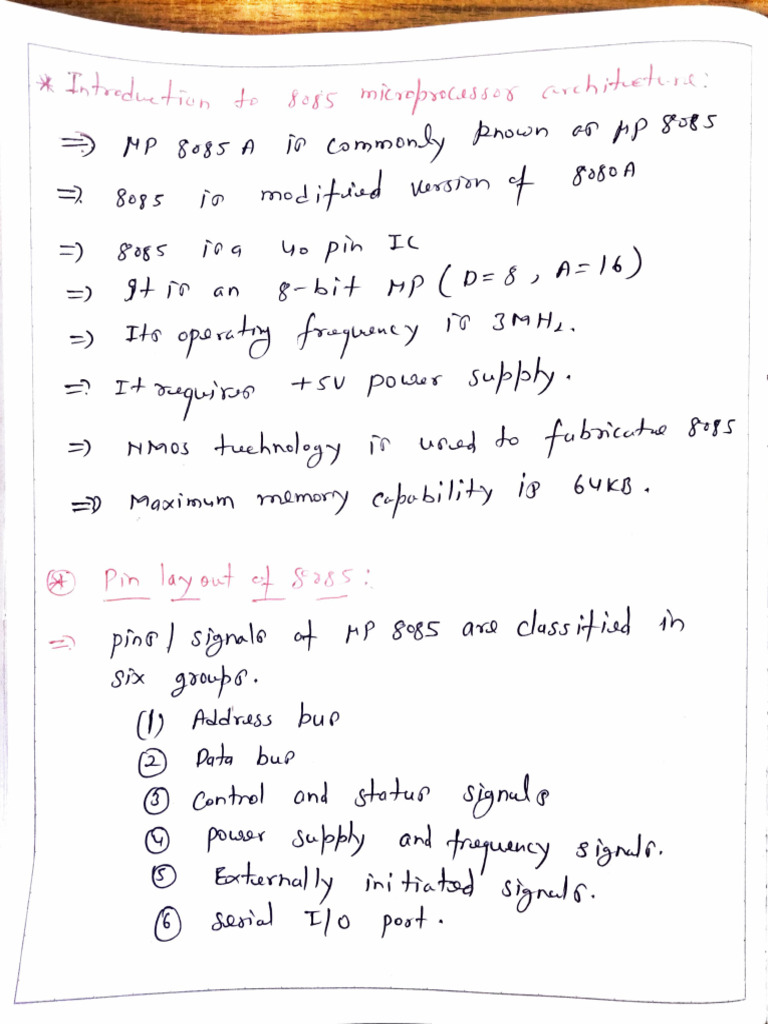 * Introduction to 8085 microprocessor architecture:
⇒ MP 8085 A is commonly known as MP 8085
⇒ 8085 is modified version of 8080A
⇒ 8085 is a 40 pin IC
⇒ It is an 8-bit MP (D=8, A=16)
⇒ Its operating frequency is 3MHz.
⇒ It requires +5V power supply.
⇒ NMOS technology is used to fabricate 8085
⇒ Maximum memory capability is 64KB.
* Pin layout of 8085:
⇒ pins/signals of MP 8085 are classified in
six groups.
(1) Address bus
② Data bus
③ Control and status signals
④ power supply and frequency signals.
⑤ Externally initiated signals.
⑥ serial I/O port.